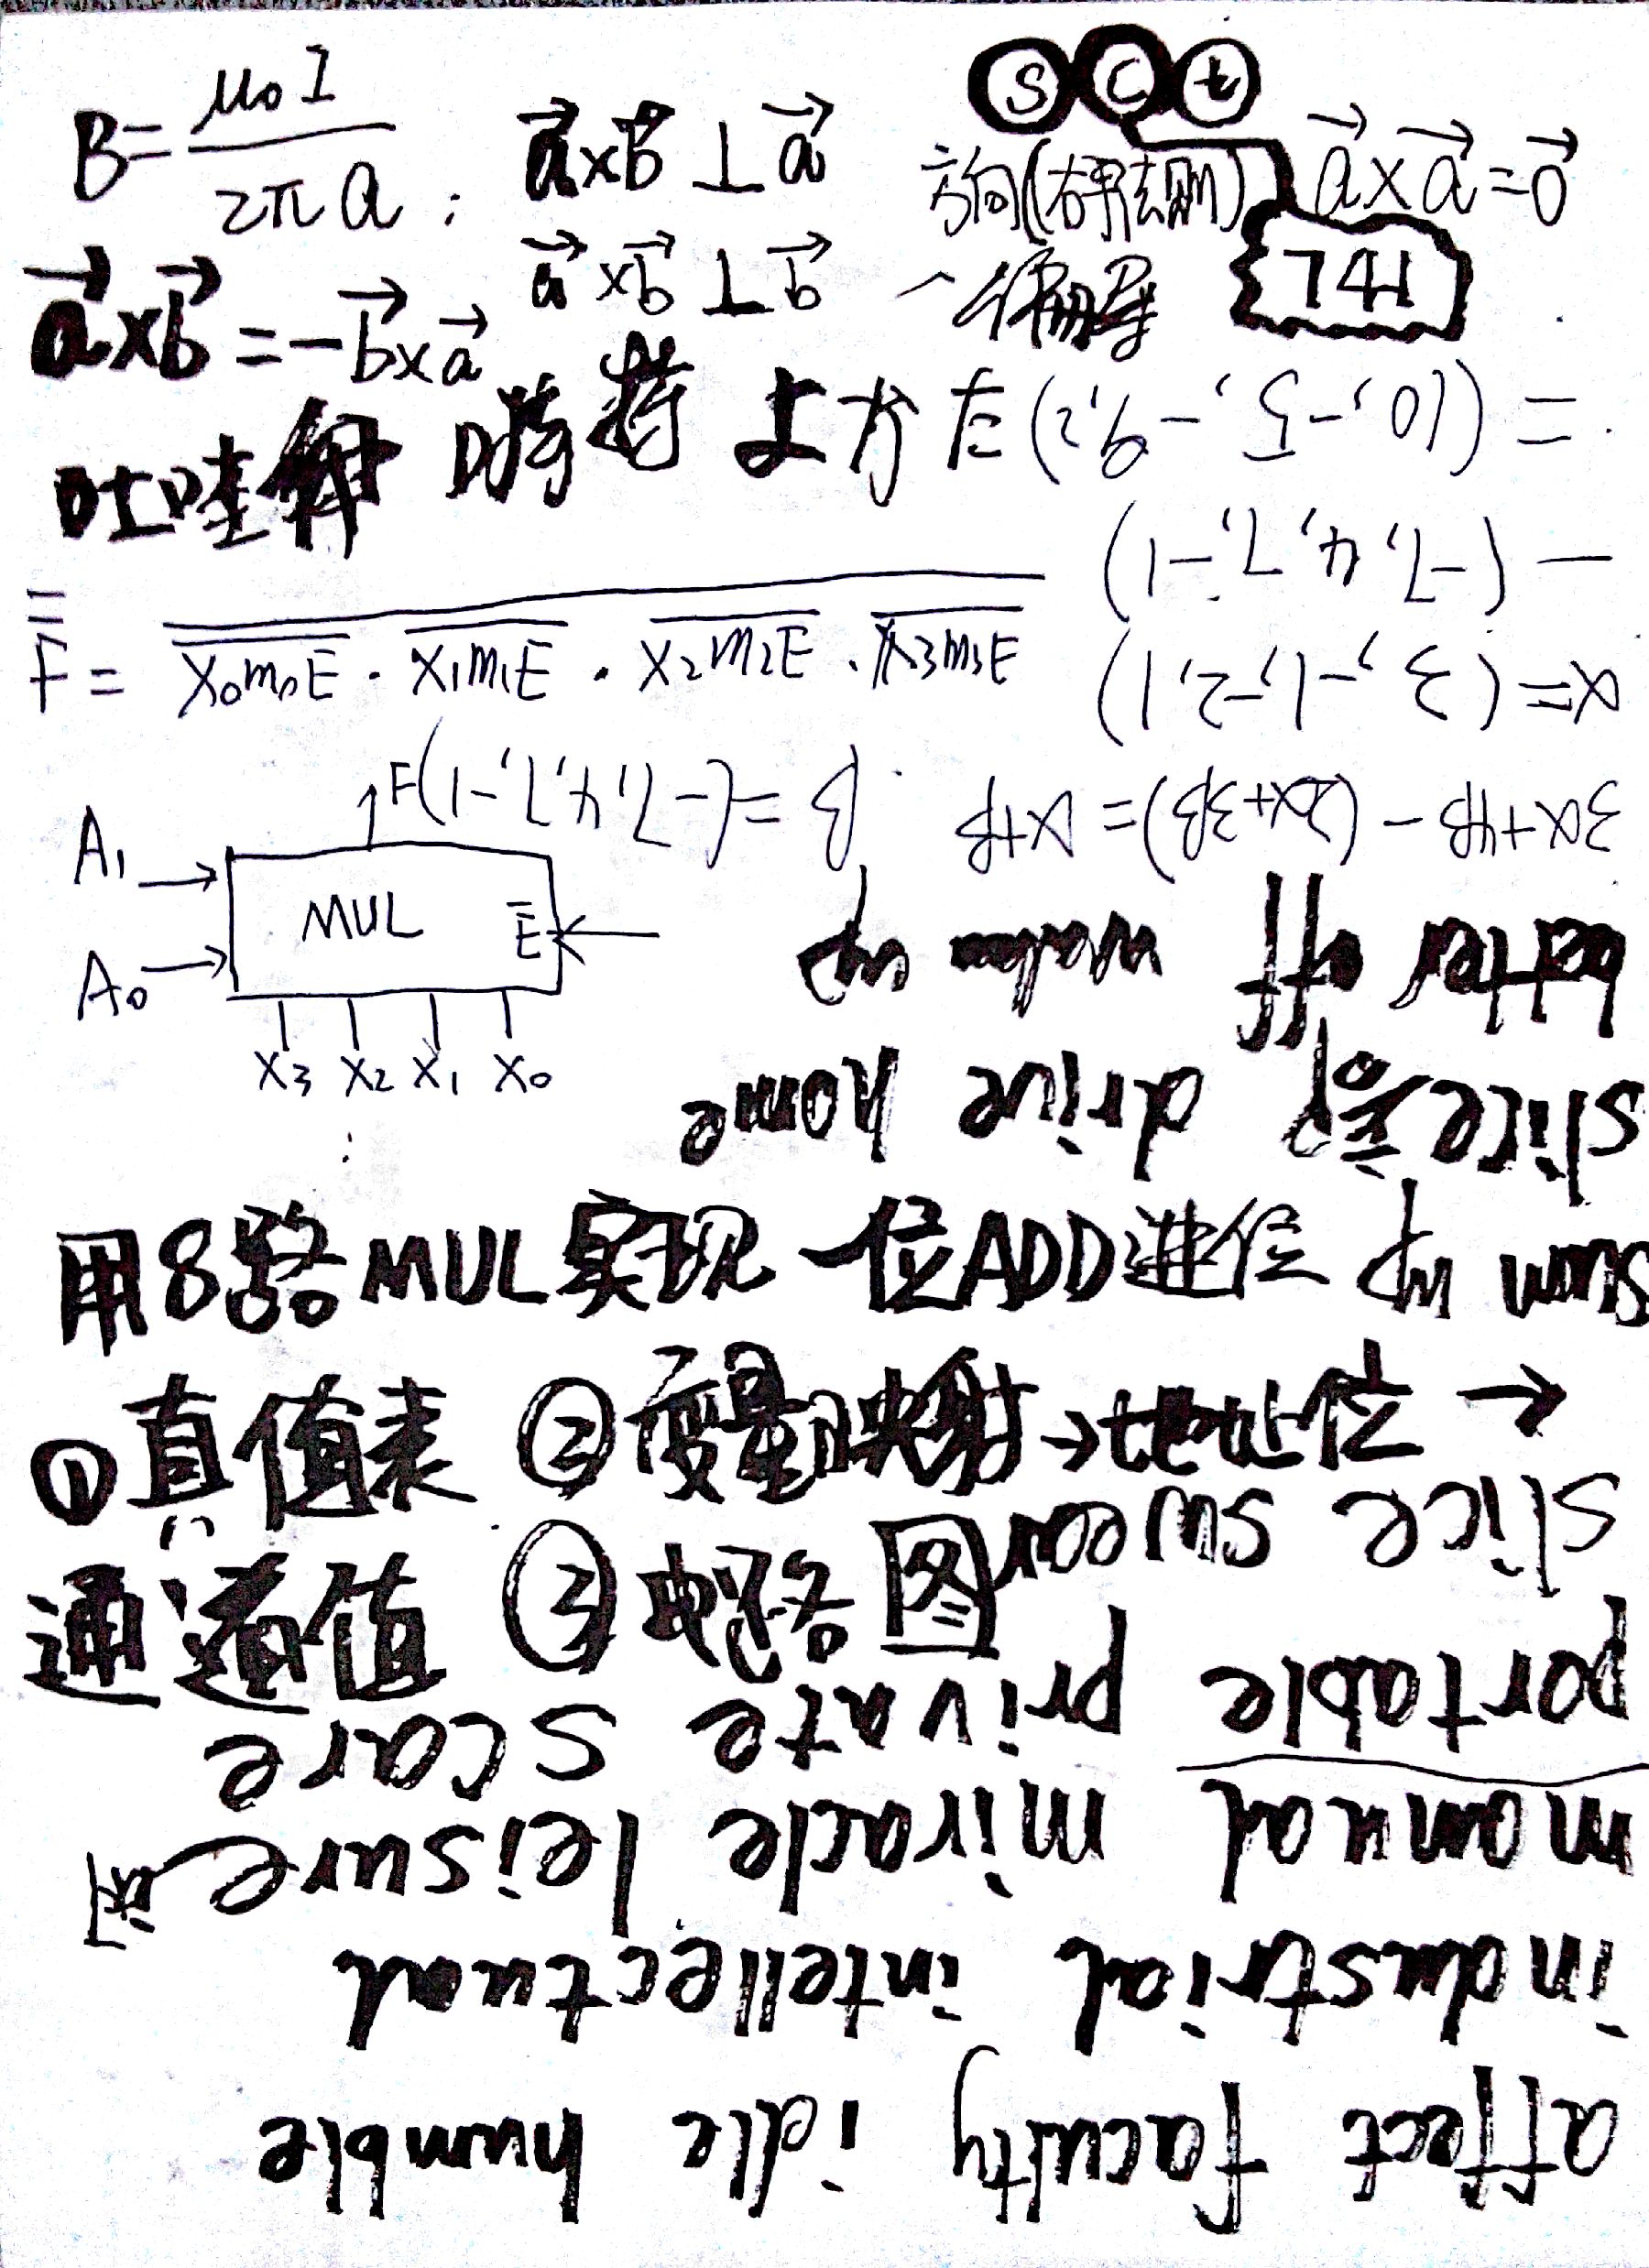 S C t
B = μ₀I / 2πa ; a⃗×b⃗⊥a⃗ 方向(右手法则) a⃗×a⃗=0⃗
a⃗×b⃗⊥b⃗ 741
a⃗×b⃗=-b⃗×a⃗
上方左
F̿ = X₀m₀E · X₁m₁E · X₂m₂E · X₃m₃E
F
A₁
MUL Ē
A₀
X₃ X₂ X₁ X₀
用8路MUL实现一位ADD进位
①真值表 ②变量映射→地址位→
通道值 ③电路图
affect faculty idle humble
industrial intellectual
manual miracle leisure
portable private scare
slice swear
sum up
slice drive home
better off up
3α+4β-(2α+3β)=α+β β=(-7,4,7,-1)
α=(3,-1,-2,1)
-(-7,4,7,-1)
=(10,-5,-9,2)